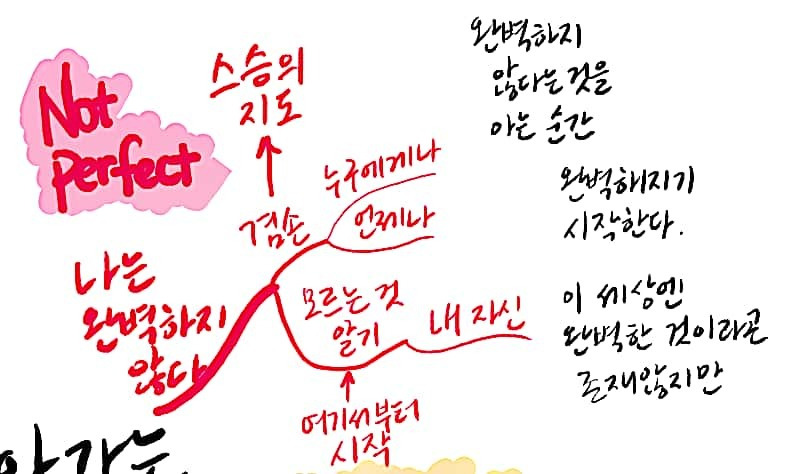 Not
Perfect
스승의
지도
겸손
누구에게나
언제나
나는
완벽하지
않다
모르는 것
알기
내 자신
여기서부터
시작
완벽하지
않다는것을
아는 순간
완벽해지기
시작한다.
이 세상엔
완벽한 것이라곤
존재않지만